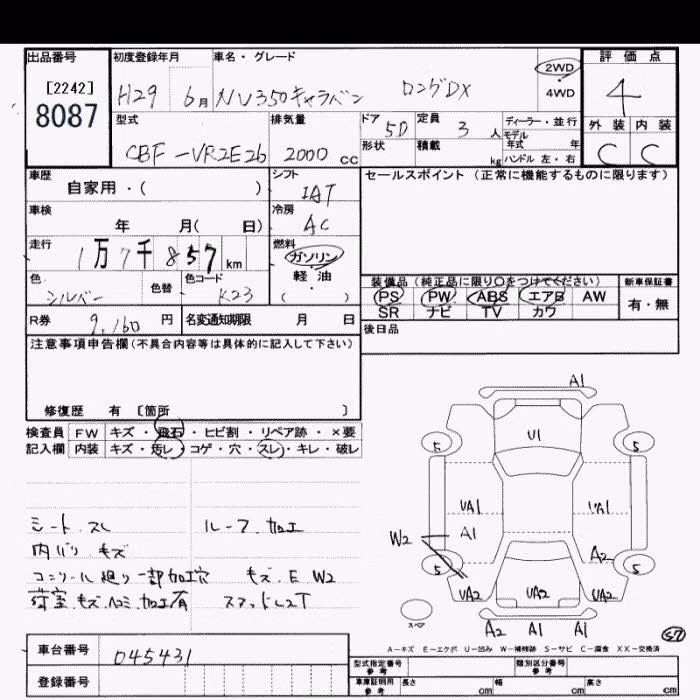 出品番号 初度登録年月 車名・グレード 評価点
[2242]
8087
H29 6月 NV350キャラバン ロングDX 2WD 4
4WD
型式 排気量 ドア 定員 ディーラー・並行 外装 内装
CBF-VR2E26 2000 CC 5D 3人 モデル年式 年 C C
形状 積載 kg ハンドル 左・右
車歴 シフト セールスポイント(正常に機能するものに限ります)
自家用・( ) IAT
車検 冷房
年 月( 日) AC
走行 燃料
1万7千857km ガソリン
色 色替 色コード 軽油
シルバー K23 ( )
装備品(純正品に限り○をつけてください) 新車保証書
PS PW ABS エアB AW 有・無
SR ナビ TV カワ
R券 9,160円 名変通知期限 月 日 後日品
注意事項申告欄(不具合内容等は具体的に記入して下さい)
修復歴 有 [箇所 ]
検査員 FW キズ・飛石・ヒビ割・リペア跡・×要
記入欄 内装 キズ・汚レ・コゲ・穴・スレ・キレ・破レ
シート.スレ ルーフ.加工
内バリ.キズ
一部加工穴 キズ.E W2
荷室.キズ.ヘコミ.加工有
A1
U1
5 5
UA1 UA1
A1
W2 A2
5 5
UA2 UA2 UA2
スペア
A2 A1 A1
57
A-キズ E-エクボ U-凹み W-補修跡 S-サビ C-腐食 XX-交換済
車台番号 045431
登録番号
型式指定番号 参考 類別区分番号 参考
車庫証明用 参考 長さ cm 幅 cm 高さ cm